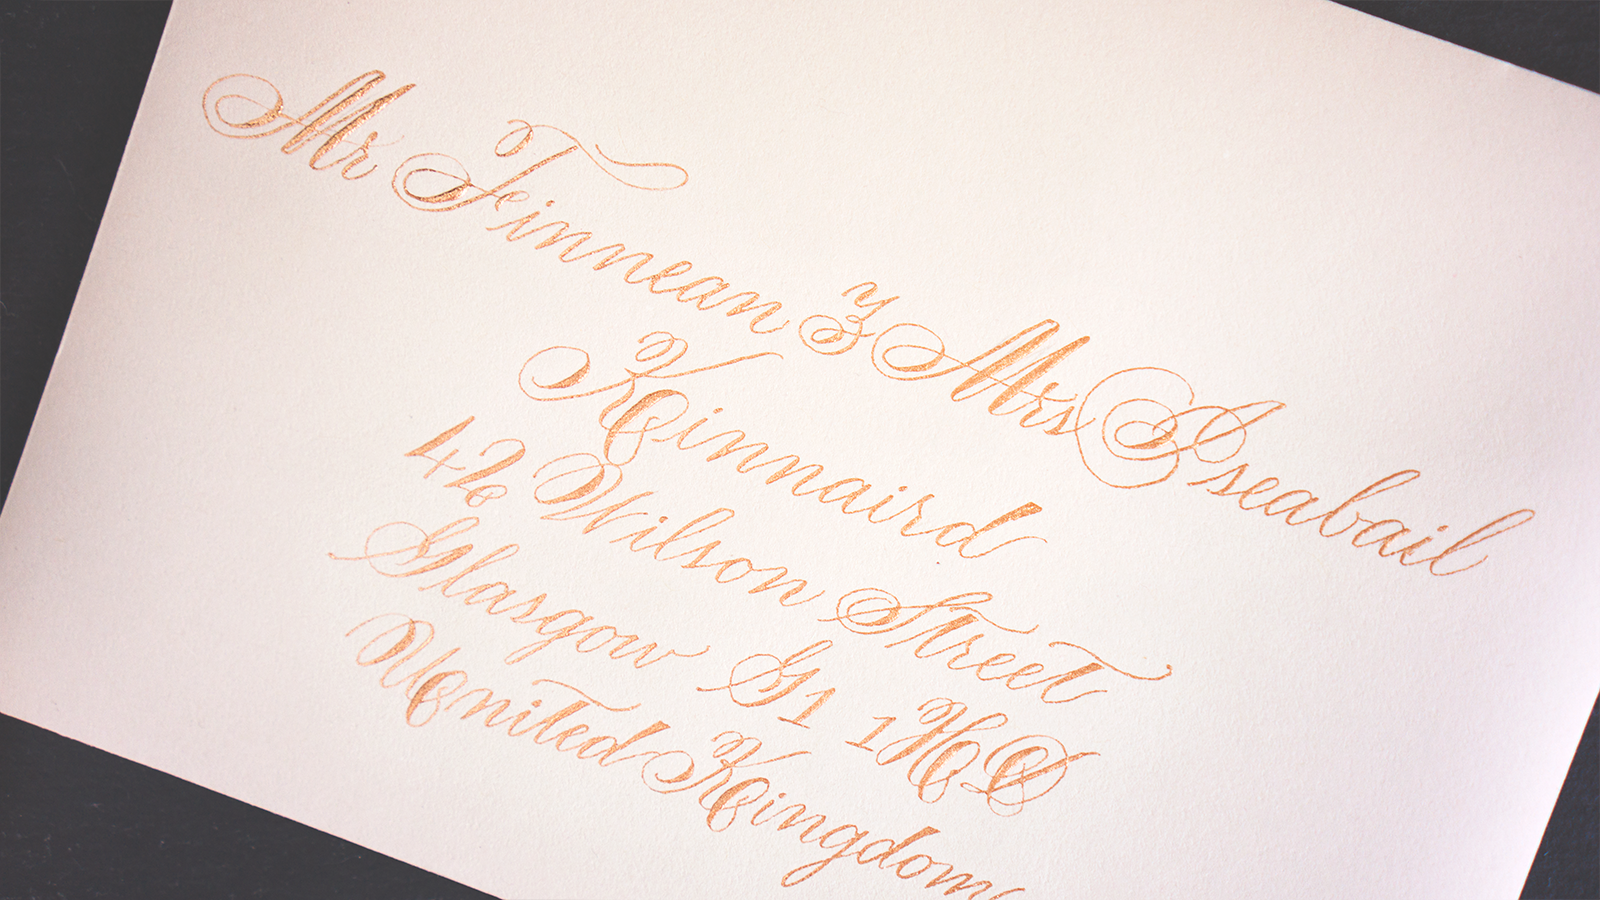 Mr Finnean & Mrs Iseabail
Kinnaird
42 Wilson Street
Glasgow G1 1HD
United Kingdom